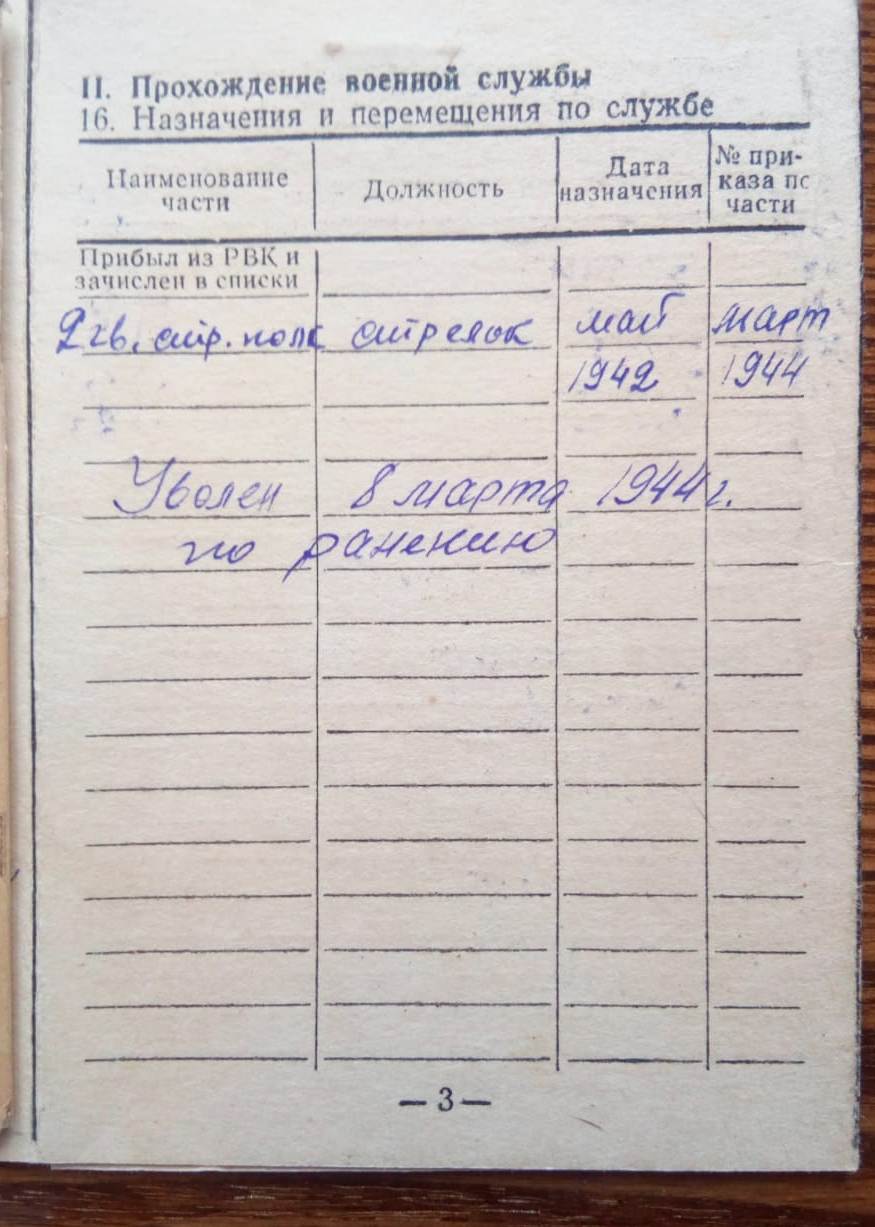 II. Прохождение военной службы
16. Назначения и перемещения по службе
Наименование части
Должность
Дата назначения
№ при-каза по части
Прибыл из РВК и
зачислен в списки
2 гв. стр. полк стрелок май март
1942 1944
Уволен 8 марта 1944 г.
по ранению
— 3 —